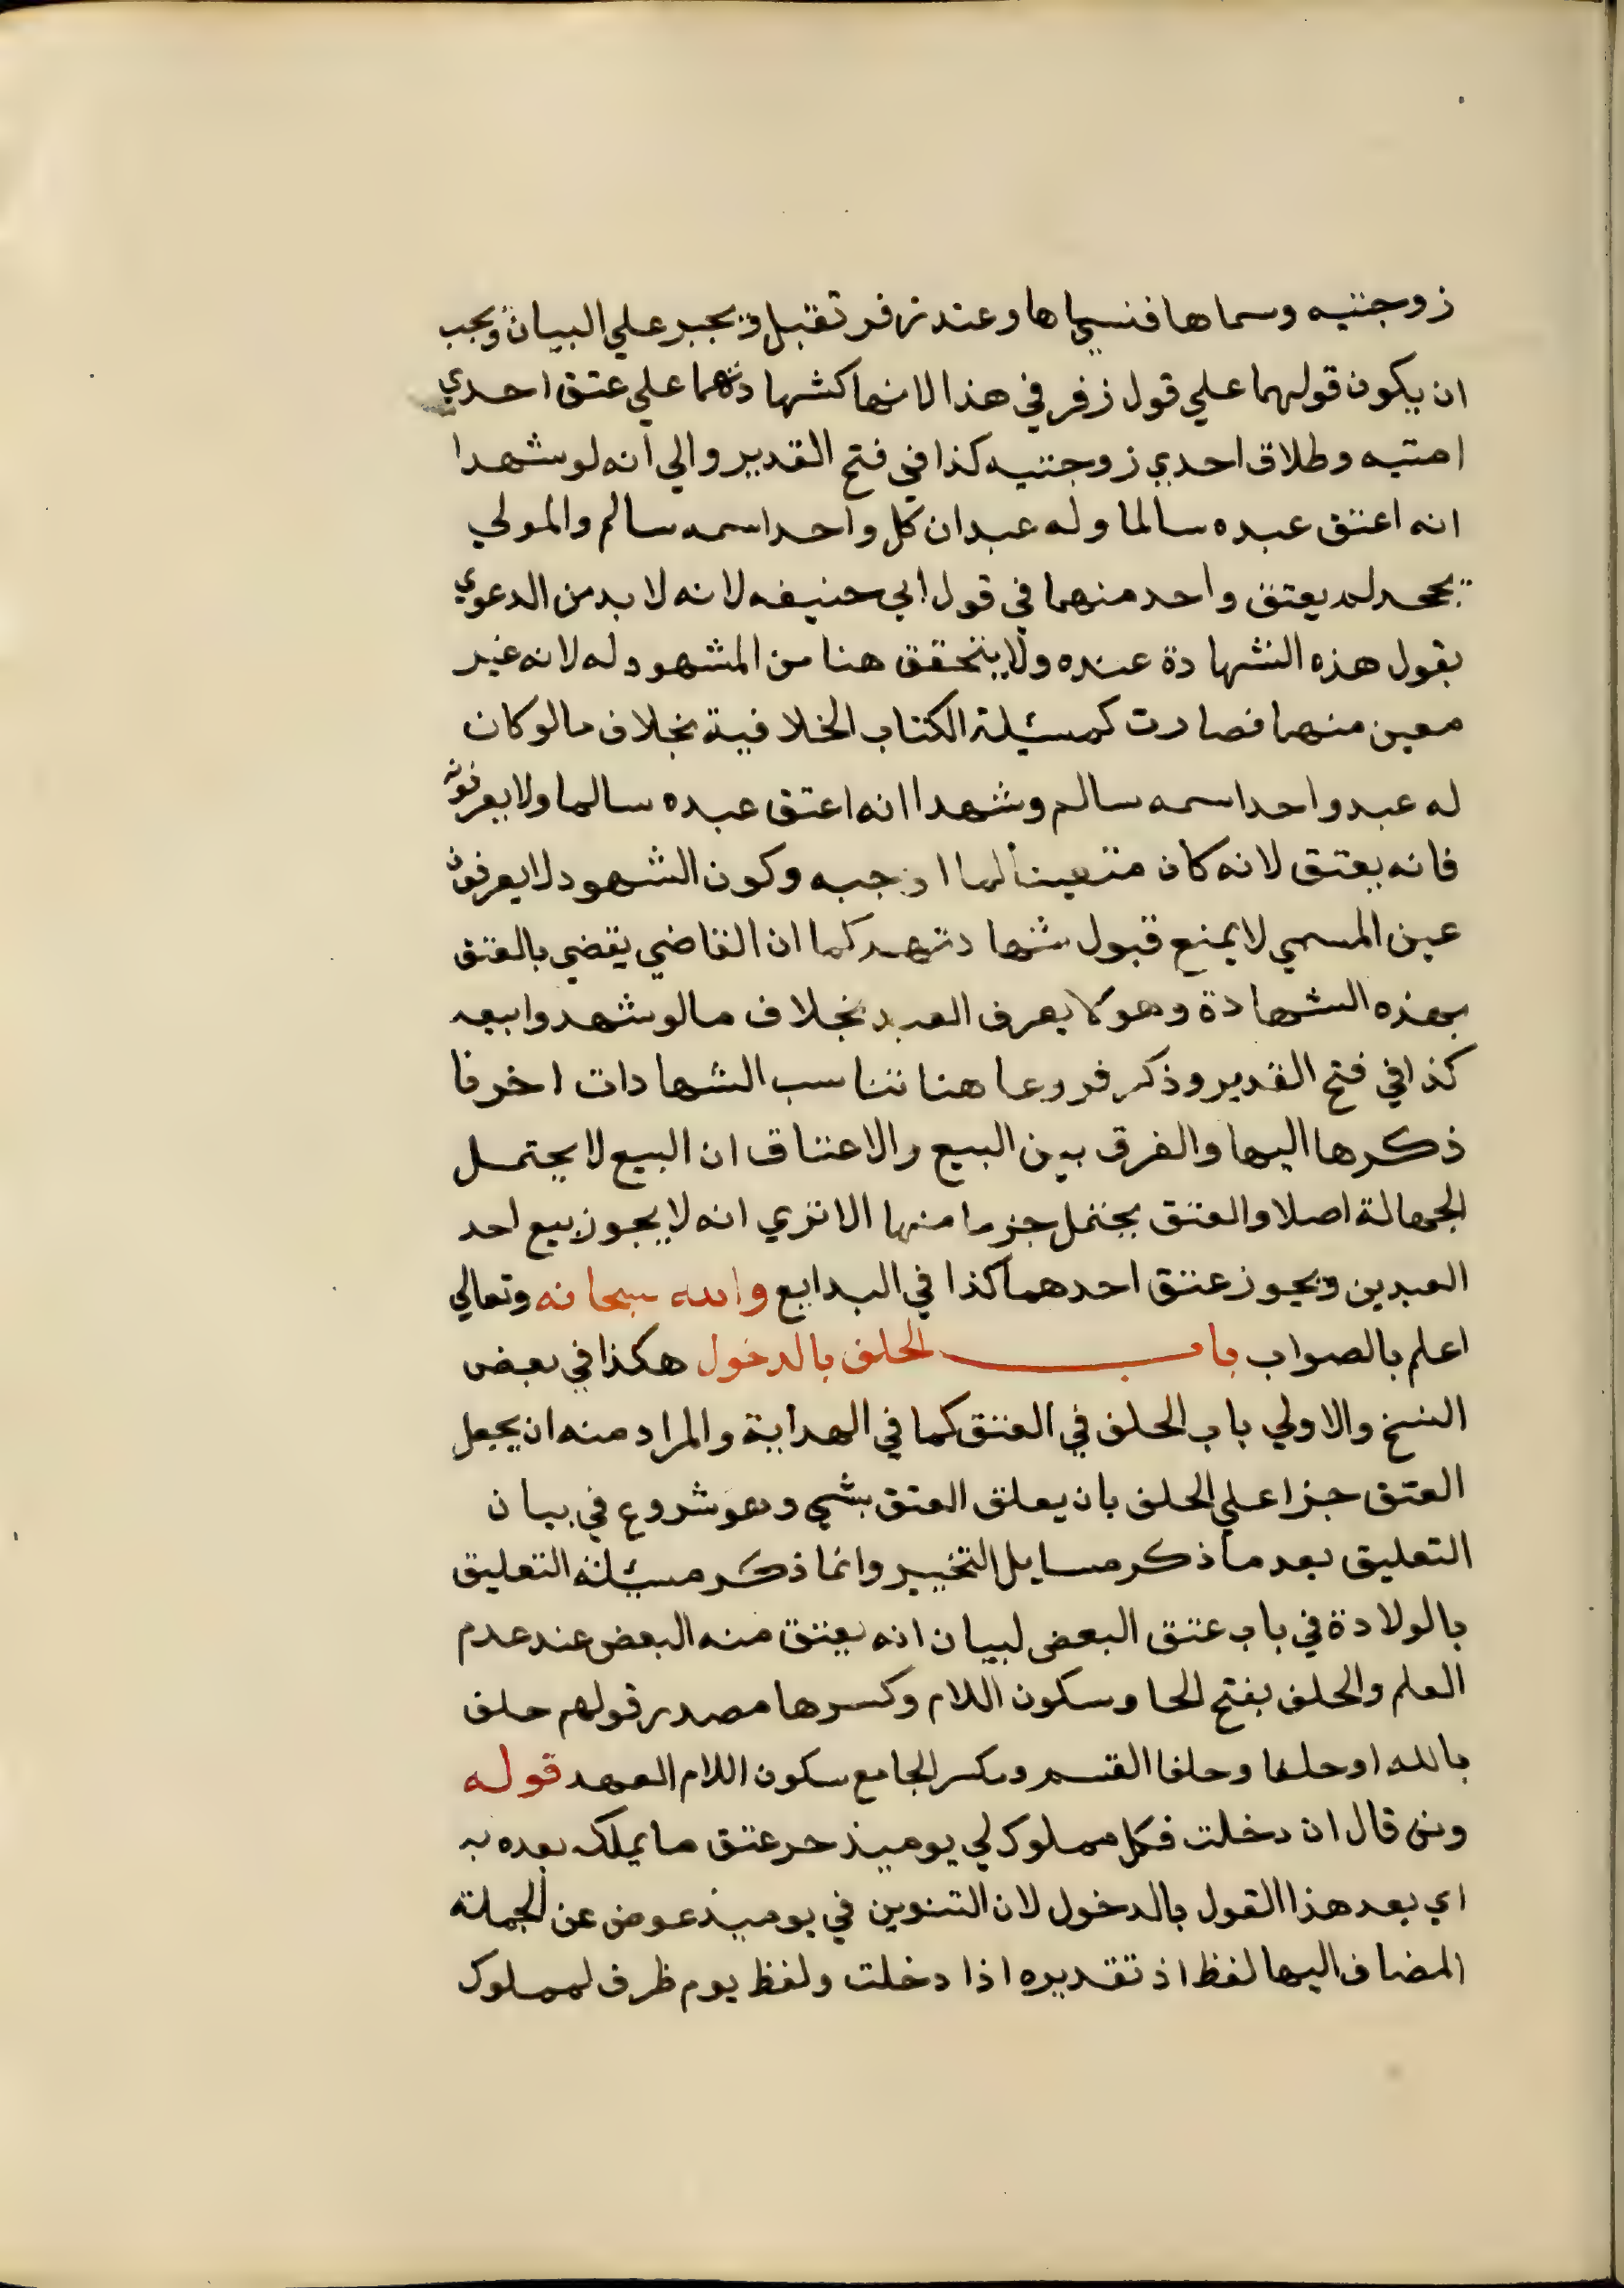 زوجتيه وسماها فنسياها وعند زفر تقبل ويجبر علي البيان ويجب
ان يكون قولهما علي قول زفر في هذا لانها كشهادتهما علي عتق احدي
امتيه وطلاق احدي زوجتيه كذا في فتح القدير والي انه لو شهدا
انه اعتق عبده سالما وله عبدان كل واحد اسمه سالم والمولي
يجحد لم يعتق واحد منهما في قول ابي حنيفه لانه لا بد من الدعوي
بقول هذه الشهادة عنده ولا يتحقق هنا من المشهود له لانه غير
معين منهما فصارت كمسئلة الكتاب الخلافية بخلاف ما لو كان
له عبد واحد اسمه سالم وشهدا انه اعتق عبده سالما ولا يعرفونه
فانه يعتق لانه كان متعينا لما اوجبه وكون الشهود لا يعرفون
عين المسمي لا يمنع قبول شهادتهم كما ان القاضي يقضي بالعتق
بهذه الشهادة وهو لا يعرف العبد بخلاف ما لو شهدوا ببيعه
كذا في فتح القدير وذكر فروعا هنا تناسب الشهادات اخرنا
ذكرها اليها والفرق بين البيع والاعتاق ان البيع لا يحتمل
الجهالة اصلا والعتق يحتمل جزما منها الا تري انه لا يجوز بيع احد
العبدين ويجوز عتق احدهما كذا في البدايع والله سبحانه وتعالي
اعلم بالصواب باب الحلف بالدخول هكذا في بعض
النسخ والاولي باب الحلف في العتق كما في الهداية والمراد منه ان يجعل
العتق جزا علي الحلف بان يعلق العتق بشي وهو شروع في بيان
التعليق بعد ما ذكر مسايل التخيير وانما ذكر مسئلة التعليق
بالولادة في باب عتق البعض لبيان انه يعتق منه البعض عند عدم
العلم والحلف بفتح الحا وسكون اللام وكسرها مصدر قولهم حلف
بالله او حلفا وحلفا القسم وبكسر الحا مع سكون اللام العهد قوله
ومن قال ان دخلت فكل مملوك لي يوميذ حر عتق ما يملك بعده به
اي بعد هذا القول بالدخول لان التنوين في يوميذ عوض عن الجملة
المضاف اليها لفظ اذ تقديره اذا دخلت ولفظ يوم ظرف لمملوك